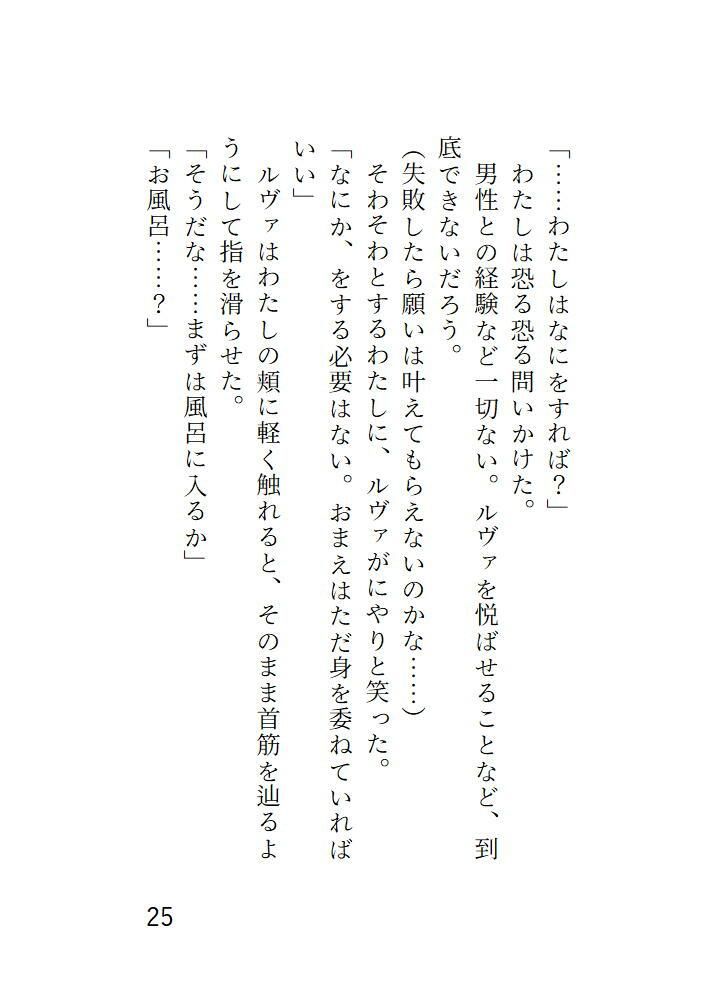 「……わたしはなにをすれば？」
　わたしは恐る恐る問いかけた。
　男性との経験など一切ない。ルヴァを悦ばせることなど、到
底できないだろう。
（失敗したら願いは叶えてもらえないのかな……）
　そわそわとするわたしに、ルヴァがにやりと笑った。
「なにか、をする必要はない。おまえはただ身を委ねていれば
いい」
　ルヴァはわたしの頬に軽く触れると、そのまま首筋を辿るよ
うにして指を滑らせた。
「そうだな……まずは風呂に入るか」
「お風呂……？」
25